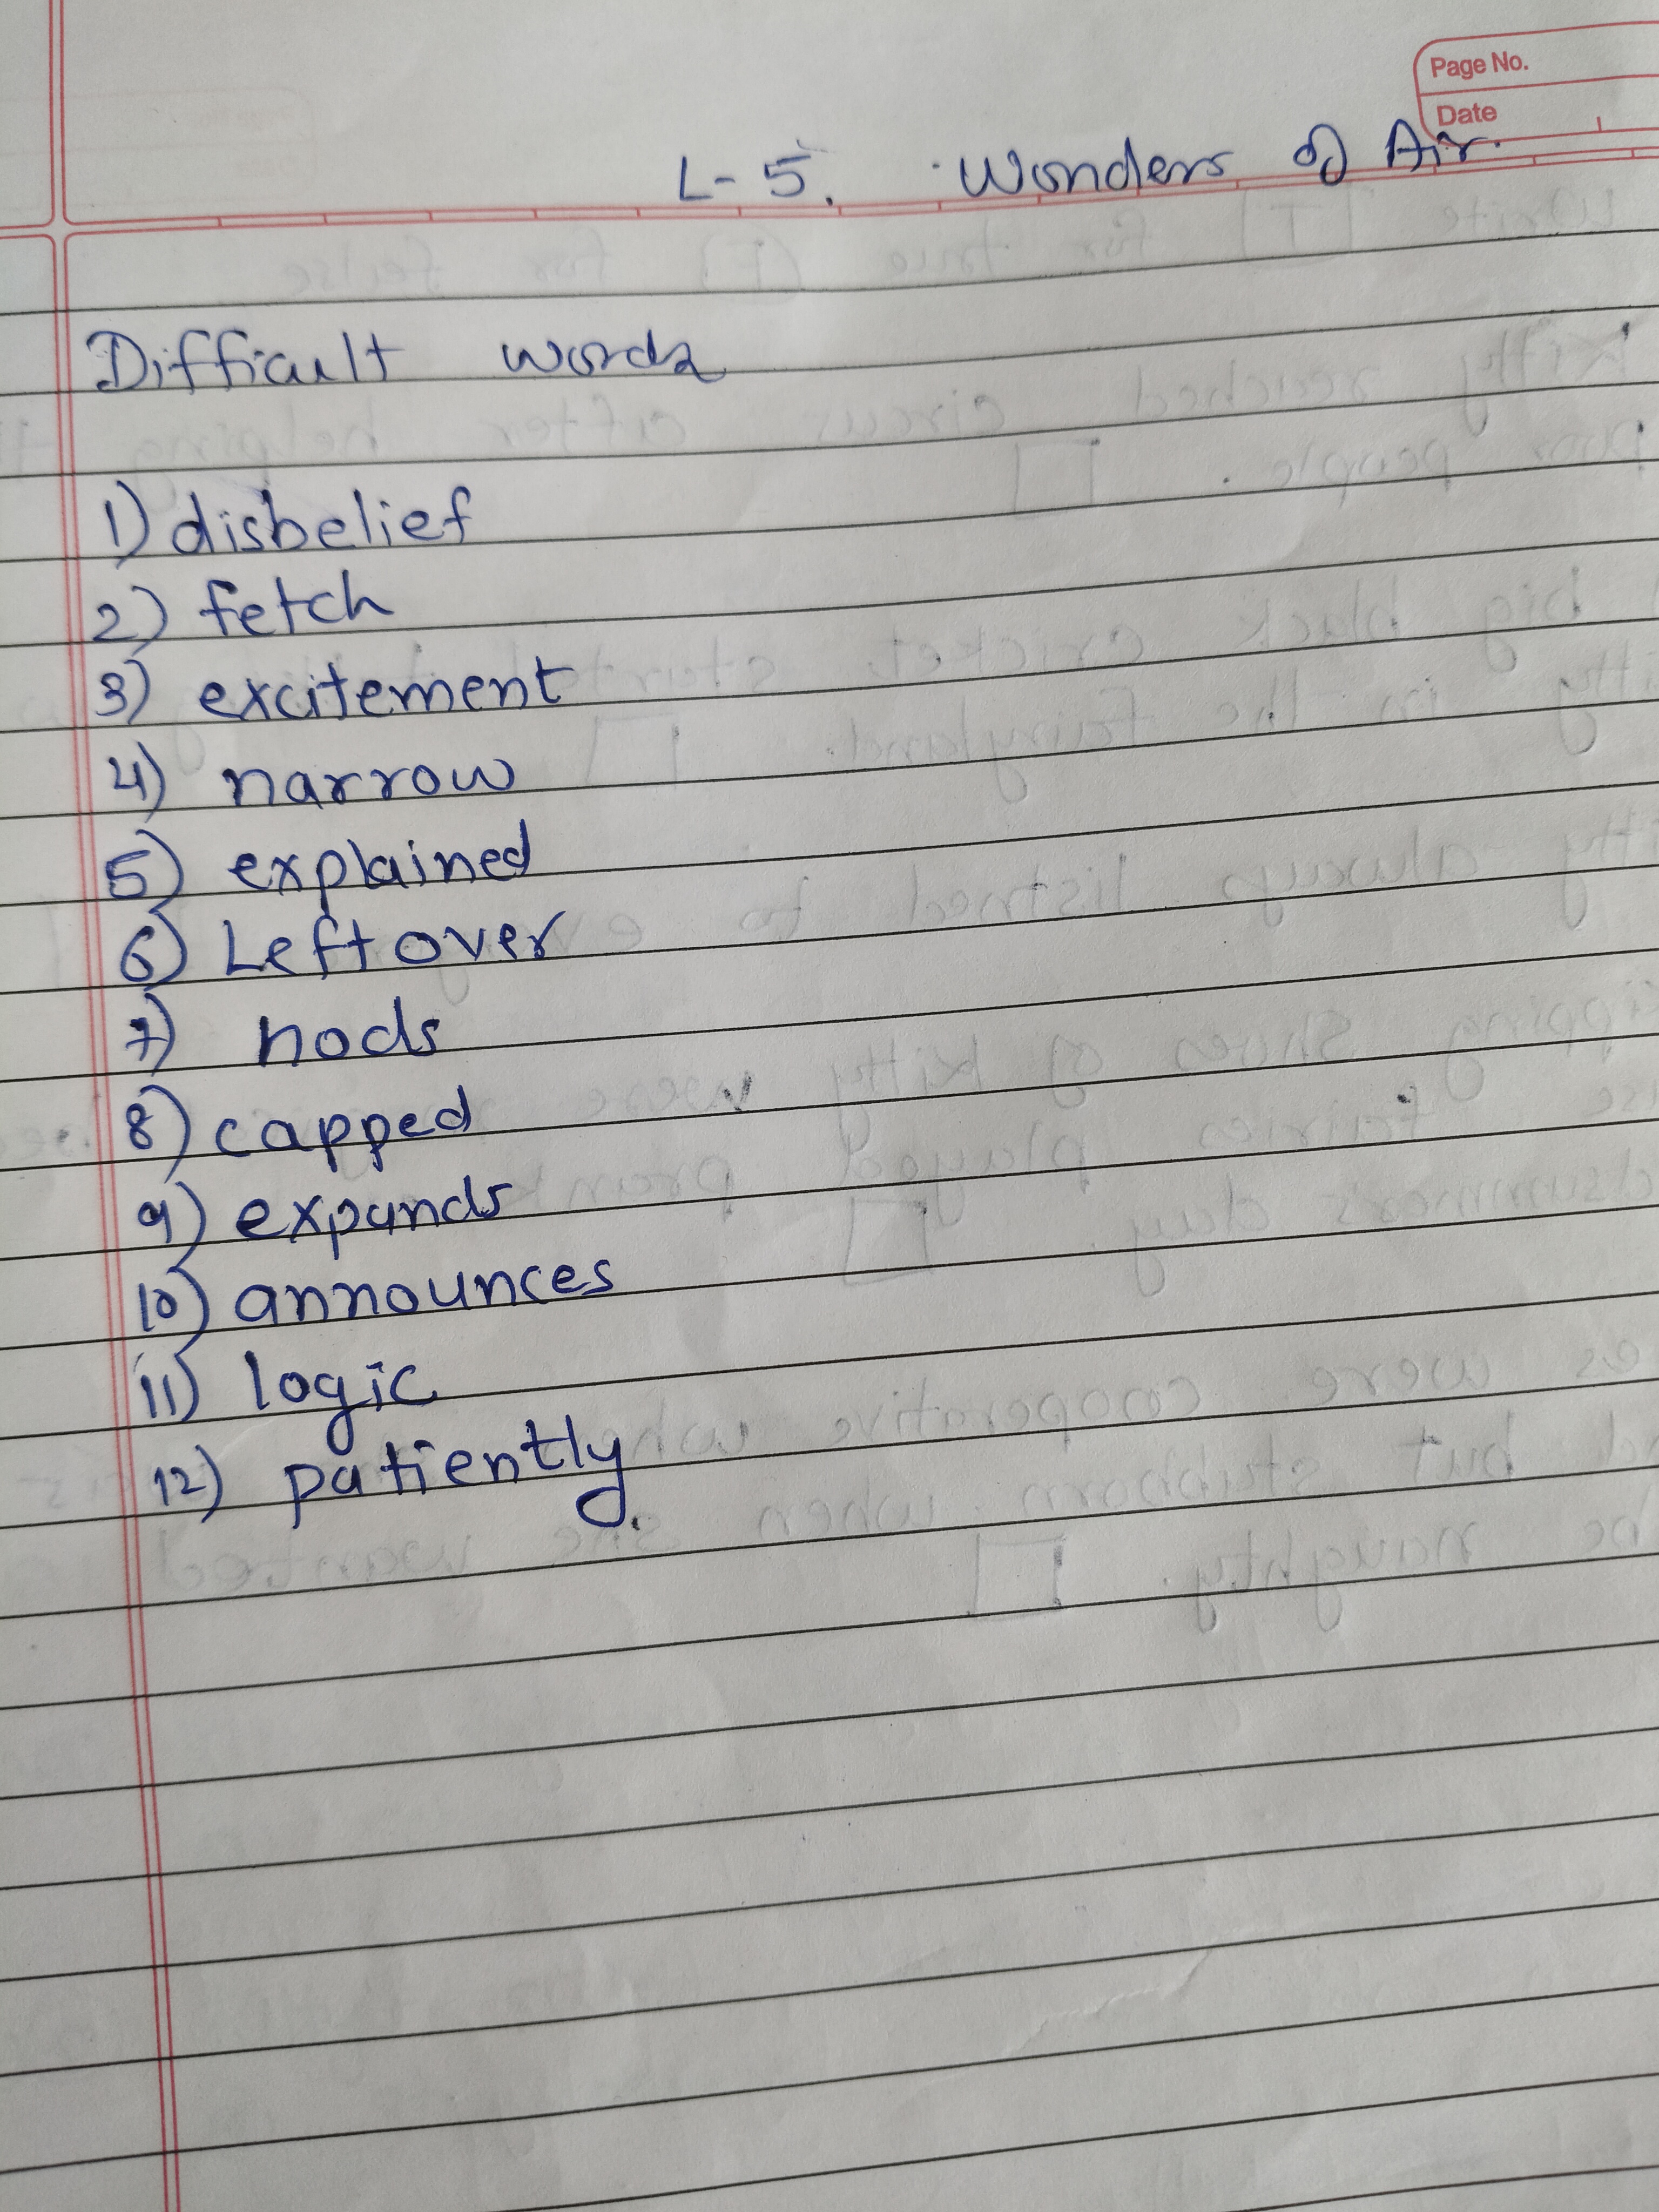 Page No.
Date
L- 5. Wonders of Air.
Difficult words
1) disbelief
2) fetch
3) excitement
4) narrow
5) explained
6) Left over
7) nods
8) capped
9) expands
10) announces
11) logic
12) patiently.